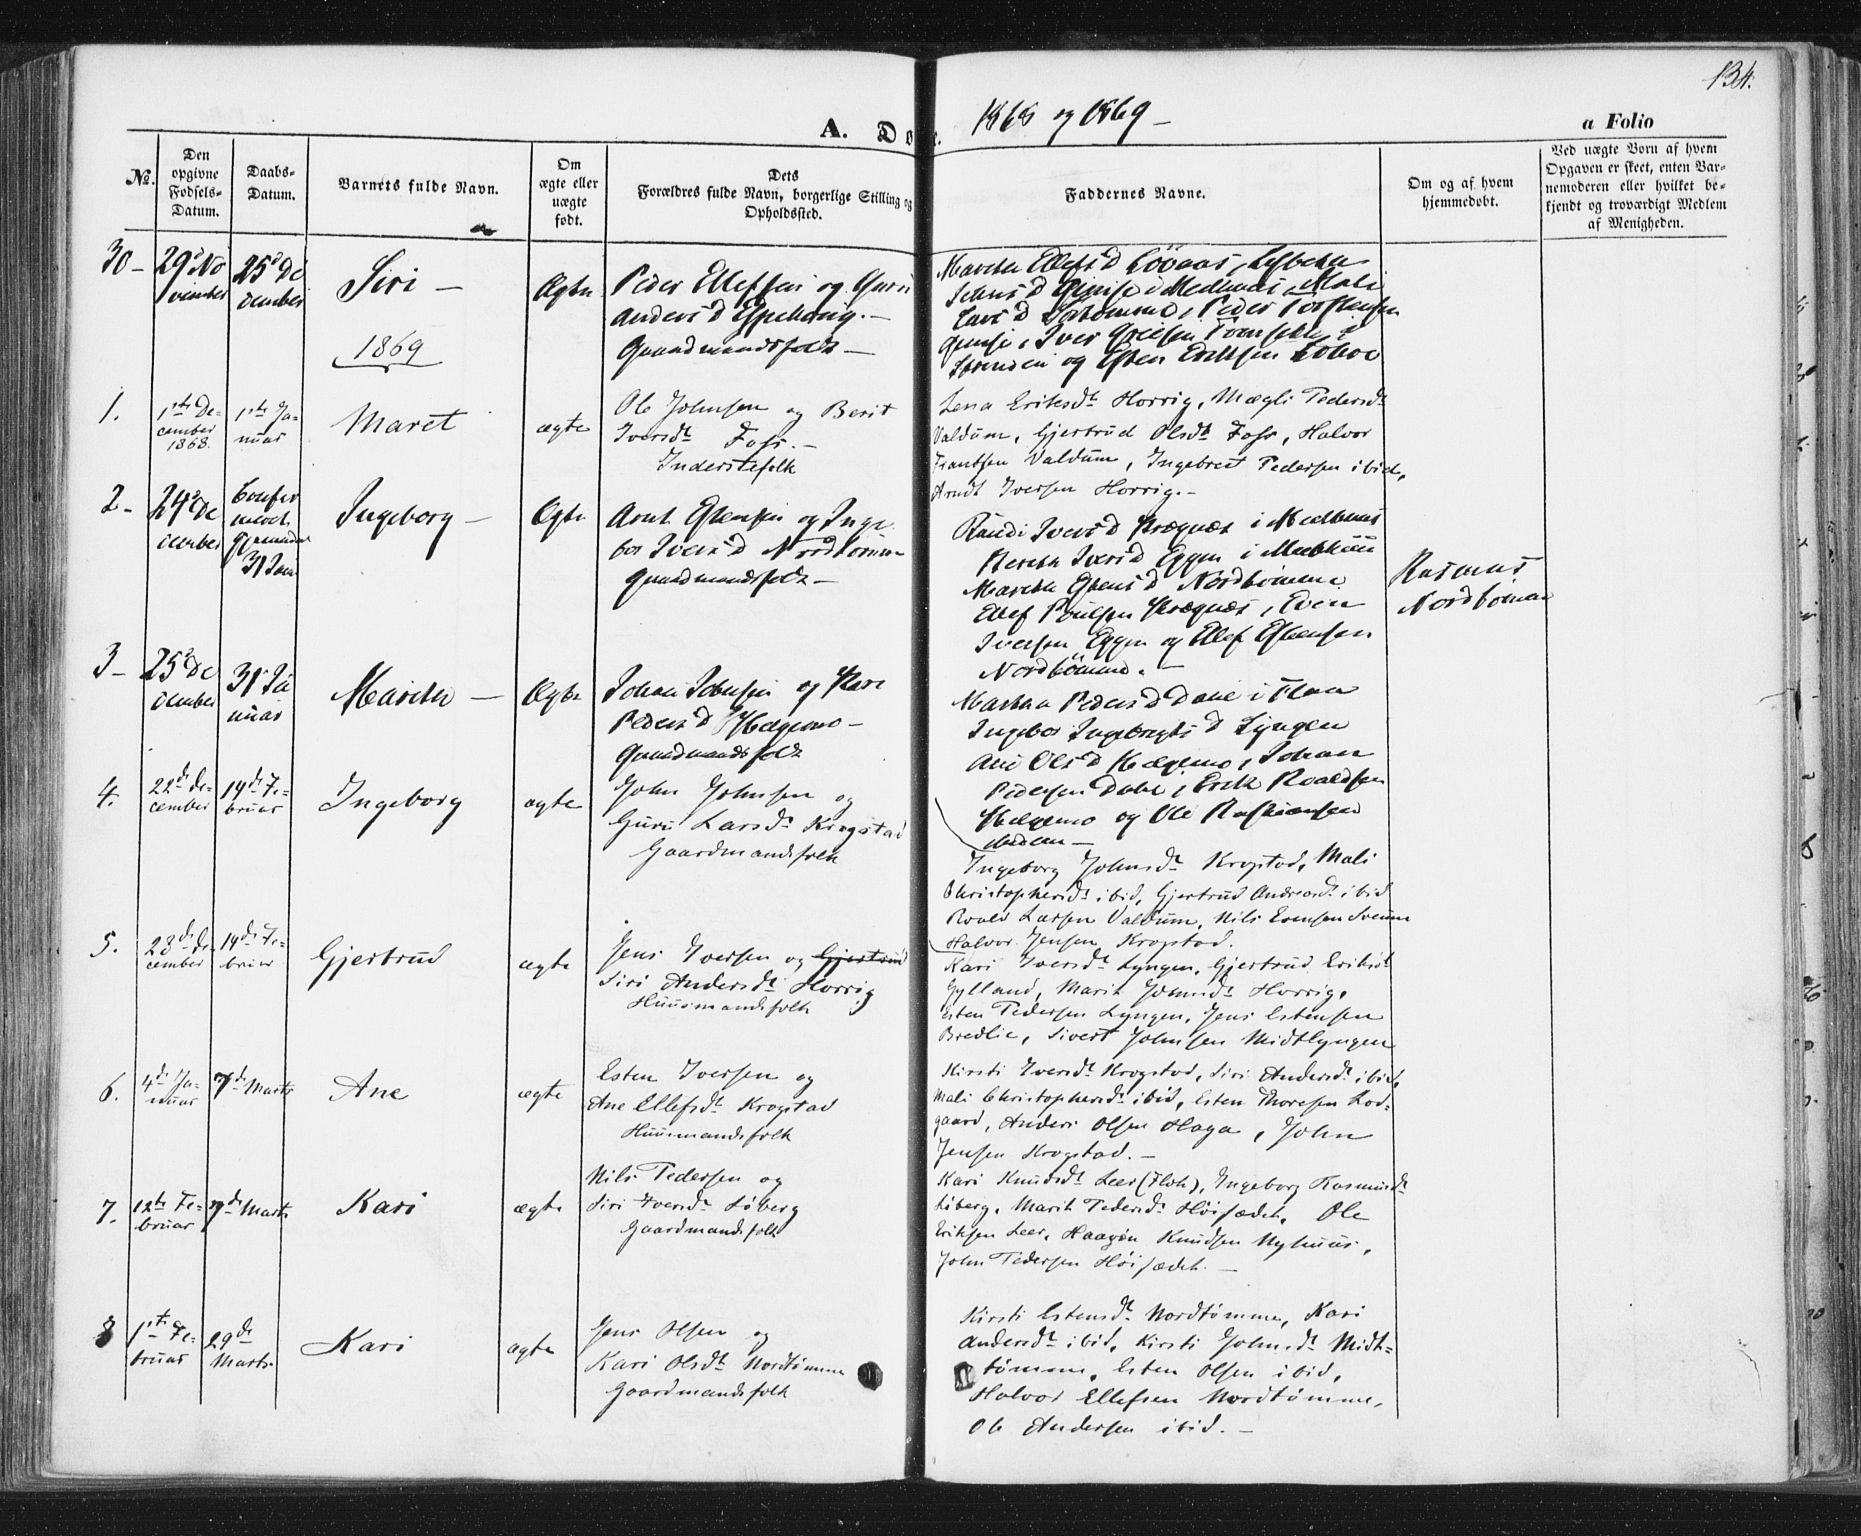 134.
A. Døbte. 1868 og 1869 –
a Folio
No.
Den opgivne Fødsels-Datum.
Daabs-Datum.
Barnets fulde Navn.
Om ægte eller uægte født.
Dets Forældres fulde Navn, borgerlige Stilling og Opholdssted.
Faddernes Navne.
Om og af hvem hjemmedøbt.
Ved uægte Børn af hvem Opgaven er skeet, enten Barnemoderen eller hvilket bekjendt og troværdigt Medlem af Menigheden.
30 –
29 No
vember
25 De
cember
Siri –
Ægte
Peder Elleffsen og Guru
Anders D Espehaug. –
Gaardmandsfolk –
Marethe Ellefs D Löönes, Lisbeth
Jens D Gimse i Melhuus, Mali
Lars D
Peder Torstensen
Gimse, Iver
og Esten Eriksen
1869
1.
1ste De-
cember
1868.
1ste Ja-
nuar
Maret
ægte
Ole Johnsen og Berit
Iversdt Foss. –
Inderstefolk
Lena Eriksdt Horrig, Mægli Pedersdt
Valdum, Gjertrud Olsdt Foss, Halvor
Frantsen Valdum, Ingebret Pedersen ibid,
Arndt Iversen Horrig. –
2 –
24 De
cember
31 Jan
Ingeborg –
Ægte
Arnt Estensen og Inge
bor Ivers D Nordtømme
Gaardmandsfolk –
Randi Ivers D Kregnæs i Melhuus
Beretha Ivers D Eggen i Melhuus
Maretha Estens D Nordtømme
Ellef Poulsen Kregnæs, Even
Iversen Eggen og Ellef Estensen
Nordtømme. –
Rasmus
Nordtømme
3 –
25 De
cember
31 Ja
nuar
Maretha –
Ægte
Johan Johnsen og Kari
Peders D Hægemo –
Gaardmandsfolk
Martha Peders D Dahl i Flaa
Ingebor Ingebrigts D Lyngen
Ane Ols D Hægemo, Johan
Pedersen Dahl, Erik Roaldsen
Hægemo og Ole
4.
22de De-
cember
14de Fe-
bruar
Ingeborg
ægte
John Johnsen og
Guru Larsdt Krogstad
Gaardmandsfolk
Ingeborg Johnsdt Krogstad, Mali
Christophersdt ibid, Gjertrud Andreasdt ibid
Roald Larsen Valdum, Nils Evensen Sveum
Halvor Jensen Krogstad.
5.
28de De-
cember
14de Fe-
bruar
Gjertrud
ægte
Jens Iversen og Gjertrud
Siri Andersdt Horrig
Huusmandsfolk
Kari Iversdt Lyngen, Gjertrud Eriksdt
Gylland, Marit Johnsdt Horrig,
Esten Pedersen Lyngen, Jens Estensen
Bredlie, Sivert Johnsen Midtlyngen
6.
4de Ja-
nuar
7de Marts
Ane
ægte
Esten Iversen og
Ane Ellefsdt Krogstad
Huusmandsfolk
Kirsti Iversdt Krogstad, Siri Andersdt ibid,
Mali Christophersdt ibid, Esten Thoresen Lod-
gaard, Anders Olsen Haga, John
Jensen Krogstad. –
7.
12te Fe-
bruar
7de Marts
Kari
ægte
Nils Pedersen og
Siri Iversdt Løberg
Gaardmandsfolk
Kari Knudsdt Leer (Flaa), Ingeborg Rasmusdt
Løberg, Marit Pedersdt Høisædet, Ole
Eriksen Leer, Haagen Knudsen Nyhuus,
John Pedersen Høisædet. –
8
1ste Fe-
bruar
29de
Marts
Kari
ægte
Jens Olsen og
Kari Olsdt Nordtømme
Gaardmandsfolk
Kirsti Estensdt Nordtømme, Kari
Andersdt ibid, Kirsti Johnsdt Midt-
tømme, Esten Olsen ibid,
Halvor Ellefsen Nordtømme,
Ole Andersen ibid. –